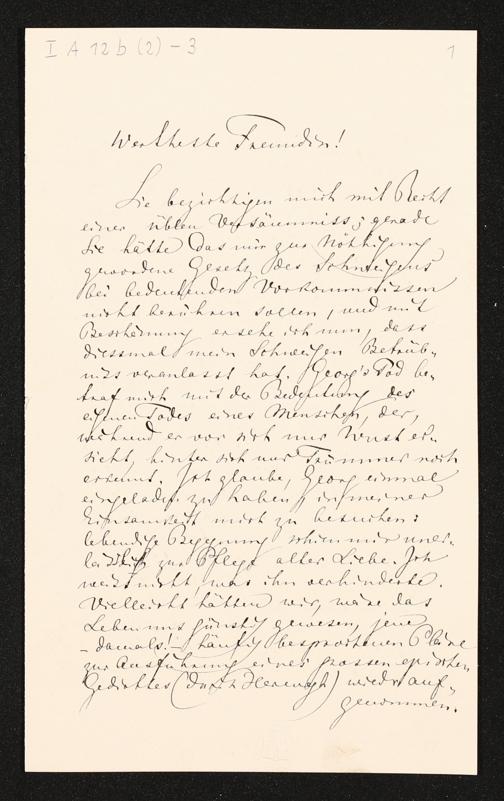 I A 12 b (2) - 3
1
Wertheste Freundin!
Sie bezichtigen mich mit Recht
einer üblen Versäumniss; gerade
Sie hätte das mir zur Nöthigung
gewordene Gesetz des Schweigens
bei bedeutenden Vorkommnissen
nicht berühren sollen, und mit
Beschämung ersehe ich nun, dass
diessmal mein Schweigen Betrüb-
niss veranlasst hat. Georg's Tod be-
traf mich mit der Bedeutung des
eigenen Todes eines Menschen, der,
während er vor sich nur Wust er-
sieht, hinter sich nur Trümmer noch
erkennt. Ich glaube, Georg einmal
eingeladen zu haben, in meiner
Einsamkeit mich zu besuchen:
lebendige Begegnung schien mir uner-
lässlich zur Pflege alter Liebe. Ich
weiss nicht was ihn verhinderte.
Vielleicht hätten wir, wäre das
Leben uns günstig gewesen, jene
- damals! - häufig besprochenen Pläne
zur Ausführung eines grossen epischen
Gedichtes (durch Herwegh) wieder auf-
genommen.